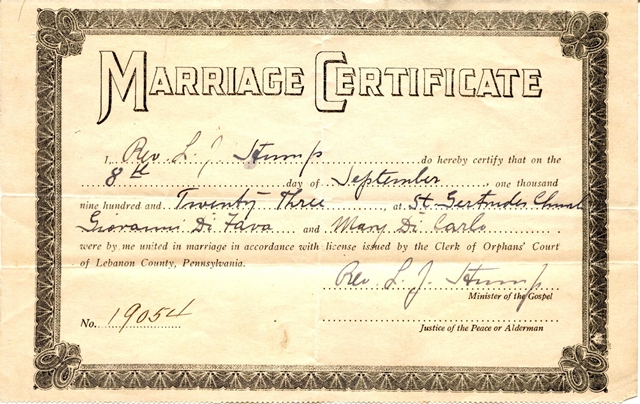 MARRIAGE CERTIFICATE
I, Rev. L. J. Stump do hereby certify that on the
8th day of September, one thousand
nine hundred and Twenty Three, at St. Gertrudes Church
Giovanni Di Fava and Mary Di Carlo
were by me united in marriage in accordance with license issued by the Clerk of Orphans' Court
of Lebanon County, Pennsylvania.
Rev. L. J. Stump
Minister of the Gospel
No. 19054
Justice of the Peace or Alderman